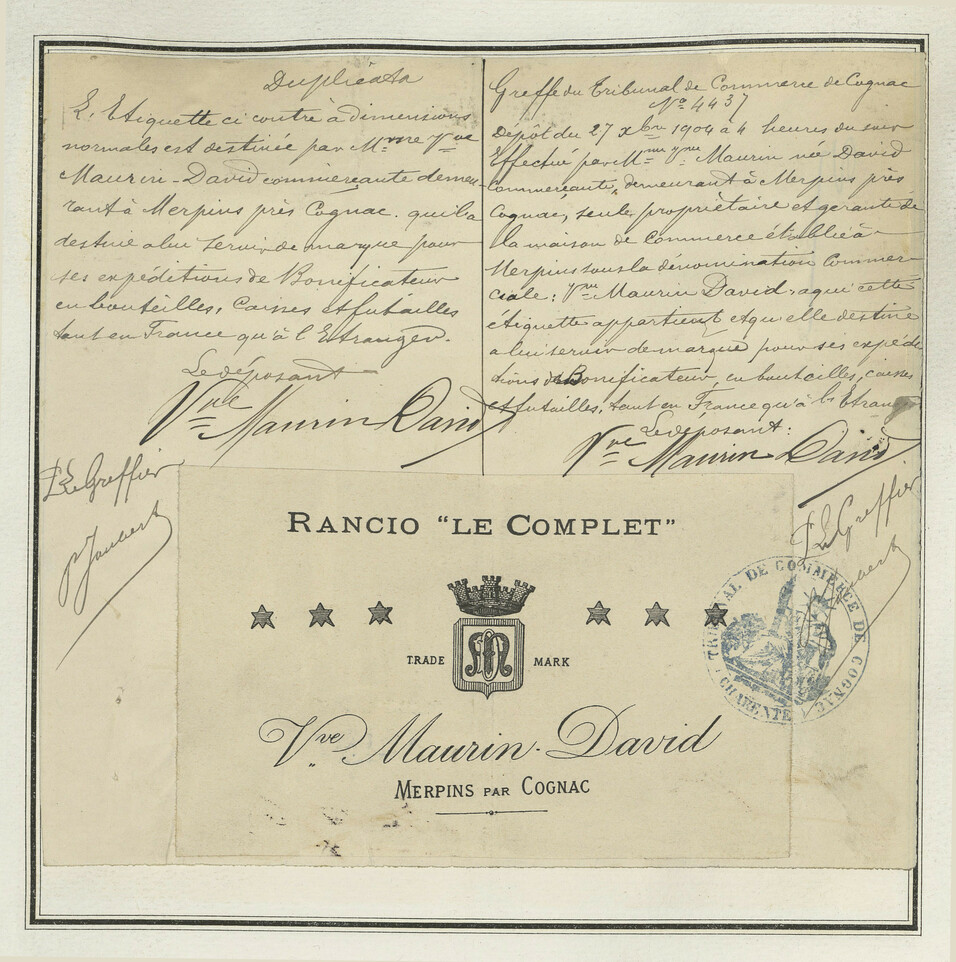 Duplicata
L'Etiquette ci contre à dimensions
normales est destinée par Mme Vve
Maurin-David commerçante demeu-
rant à Merpins près Cognac. qui l'a
destine a lui servir de marque pour
ses expéditions de Bonificateur
en bouteilles, Caisses et futailles
tant en France qu'à l'Etranger.
Le déposant
Vve Maurin David
P. Le Greffier
P Joubert
Greffe du Tribunal de Commerce de Cognac
No 4437
Dépôt du 27 xbre 1904 à 4 heures du soir
Effectué par Mme Vve Maurin née David
Commerçante, demeurant à Merpins près
Cognac, seule propriétaire et gérante de
la maison de Commerce établie à
Merpins sous la dénomination Commer-
ciale: Vve Maurin David, a qui cette
étiquette appartient et qu'elle destine
a lui servir de marque pour ses expédi
tions de Bonificateur, en bouteilles, caisses
et futailles, tant en France qu'à l'Etranger
Le déposant:
Vve Maurin David
P. Le Greffier
RANCIO "LE COMPLET"
TRADE MARK
Vve Maurin-David
MERPINS PAR COGNAC
TRIBUNAL DE COMMERCE DE COGNAC
CHARENTE